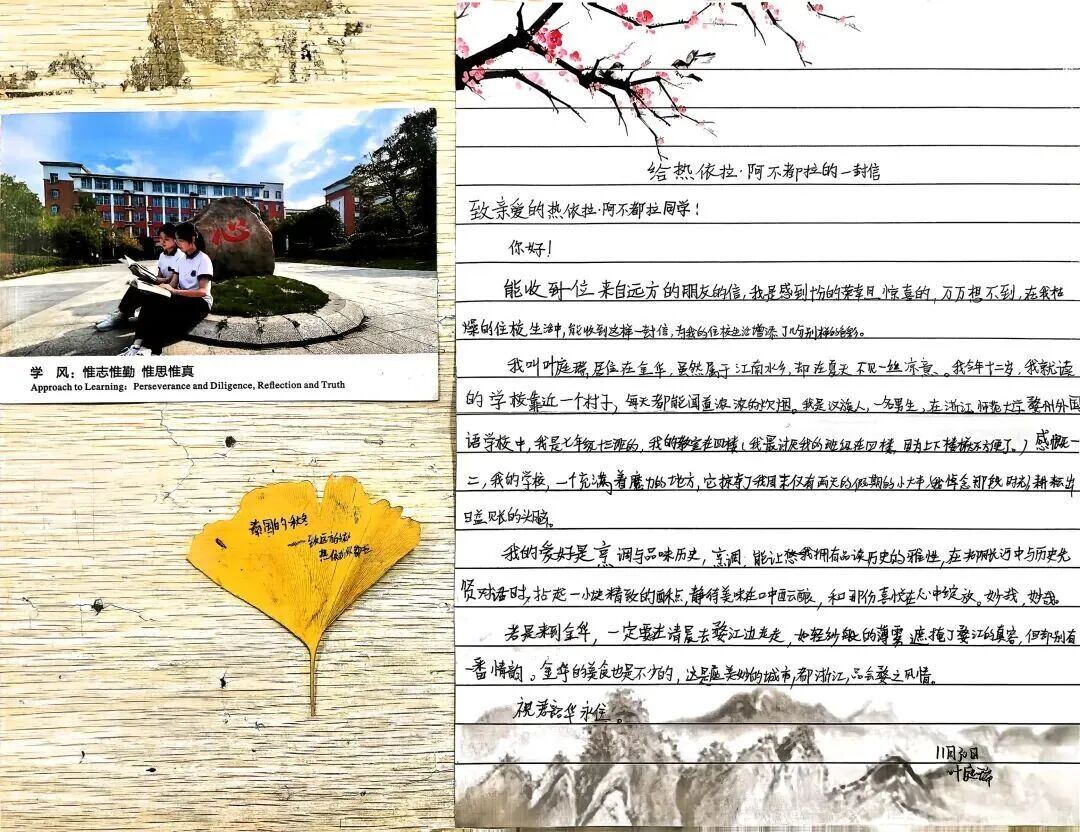 心
学 风：惟志惟勤 惟思惟真
Approach to Learning: Perseverance and Diligence, Reflection and Truth
秋冬
致远方的
热依拉
给热依拉·阿不都拉的一封信
致亲爱的热依拉·阿不都拉同学！
你好！
能收到一位来自远方的朋友的信，我是感到十份的荣幸且惊喜的，万万想不到，在我枯
燥的住校生活中，能收到这样一封信，为我的住校生活增添了几分别样的色彩。
我叫叶庭瑞，居住在金华，虽然属于江南水乡，却在夏天不见一丝凉意。我今年十二岁，我就读
的学校靠近一个村子，每天都能闻道浓浓的炊烟。我是汉族人，一名男生，在浙江师范大学婺州外国
语学校中，我是七年级十三班的，我的教室在四楼（我最讨厌我的班级在四楼，因为上下楼梯不方便了。）感慨一
二，我的学校，一个充满着魔力的地方，它掠夺了我周末仅有两天的假期的
日益见长的头脑。
我的爱好是烹调与品味历史，烹调，能让我拥有品读历史的雅性，在与历史先
贤对话时，拈起一小块精致的酥点，静待美味在口中酝酿，和那份喜悦在心中绽放。妙哉，妙哉
若是来到金华，一定要在清晨去婺江边走走，如轻纱般的薄雾遮掩了婺江的真容，但却别有
番情韵。金华的美食也是不少的，这是座美妙的城市，都浙江，品会婺之风情。
祝君韶华永住。
11月30日
叶庭瑞